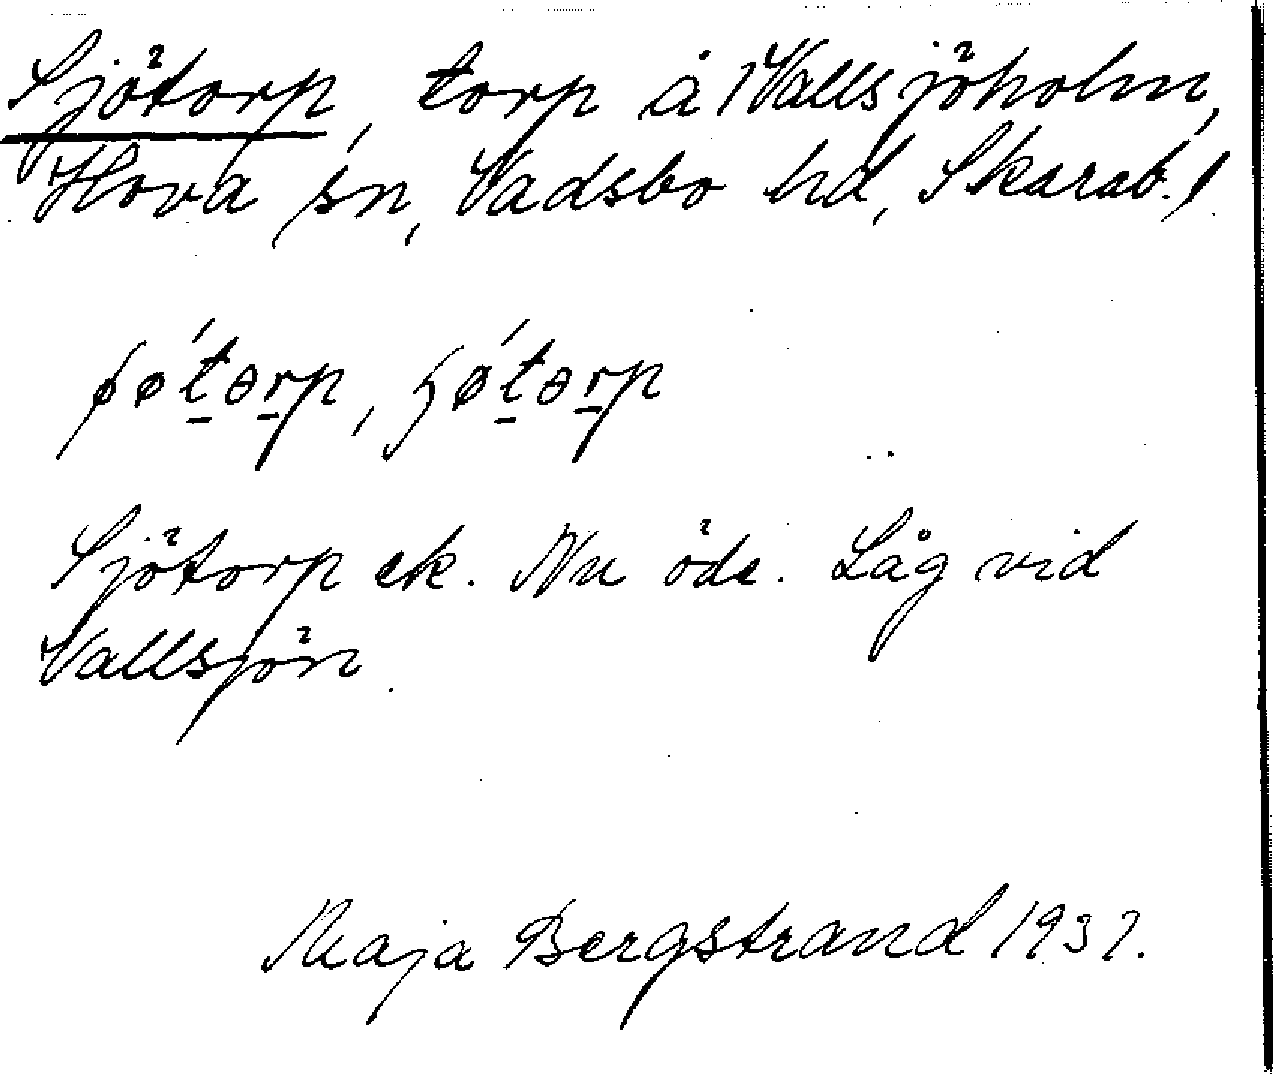 Sjötorp, torp å Vallsjöholm,
Hova sn, Vadsbo hd, Skarab. l.
Sjötorp ek. Nu öde. Låg vid
Vallsjön.
Maja Bergstrand 1937.